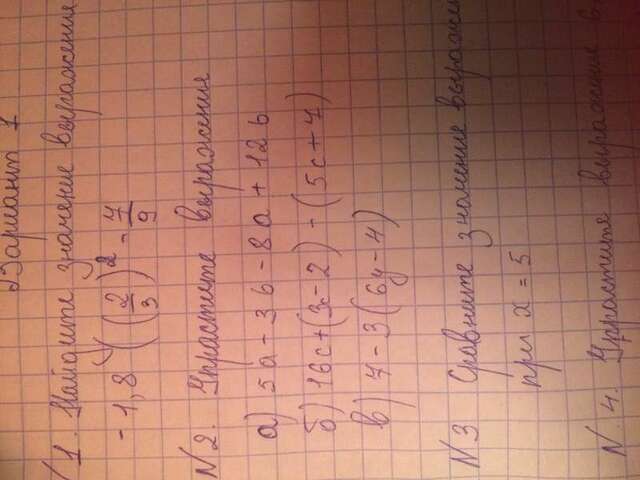 Вариант 1
1. Найдите значение выражения
- 1,8 ((2/3)² - 7/9
№2. Упрастите выражение
а) 5a - 3b - 8a + 12b
б) 16c + (3c - 2) - (5c + 7)
в) 7 - 3(6y - 4)
№3 Сравните значение
при x = 5
№ 4. Упрастите выражение